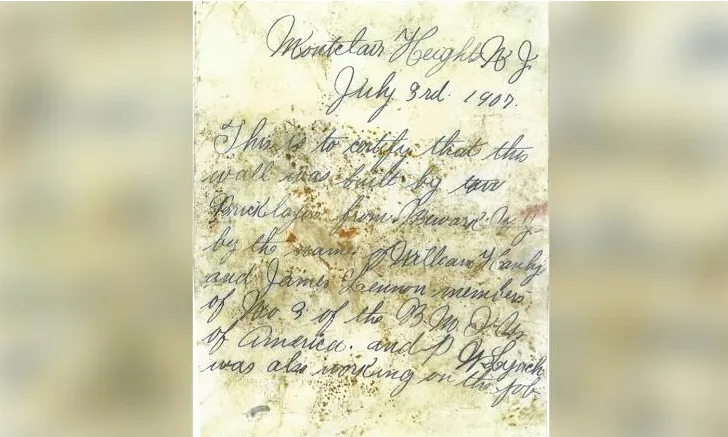 Montclair Heights N J.
July 3rd. 1907.
This is to certify that this
wall was built by two
Bricklayers from Newark N. J.
by the name of William Hanly
and James Lennon members
of No. 3 of the B. M. I. U.
of America. and P W Lynch
was also working on the job